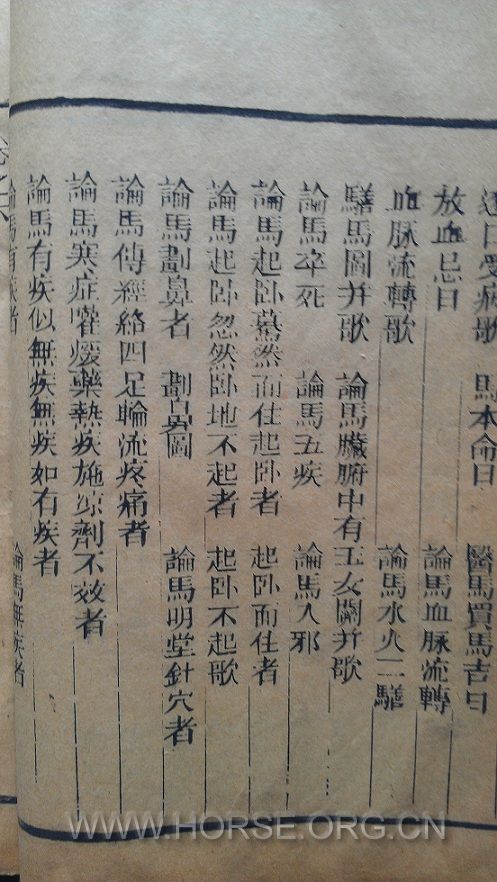 逐日受病歌 馬本命日 醫馬買馬吉日
放血忌日 論馬血脉流轉
血脉流轉歌 論馬水火二騸
騸馬圖并歌 論馬臟腑中有玉女關并歌
論馬卒死 論馬五疾 論馬八邪
論馬起卧驀然而住起卧者 起卧而住者
論馬起卧忽然卧地不起者 起卧不起歌
論馬劃鼻者 劃鼻圖 論馬明堂針穴者
論馬傳經絡四足輪流疼痛者
論馬寒症嚾煖藥熱疾施凉劑不效者
論馬有疾似無疾無疾如有疾者
論馬有疾者 論馬無疾者
WWW.HORSE.ORG.CN